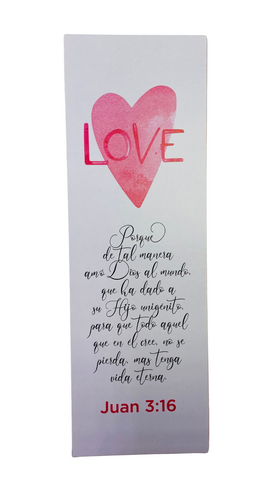 LOVE
Porque
de tal manera
amó Dios al mundo,
que ha dado a
su Hijo unigenito,
para que todo aquel
que en el cree, no se
pierda, mas tenga
vida eterna.
Juan 3:16